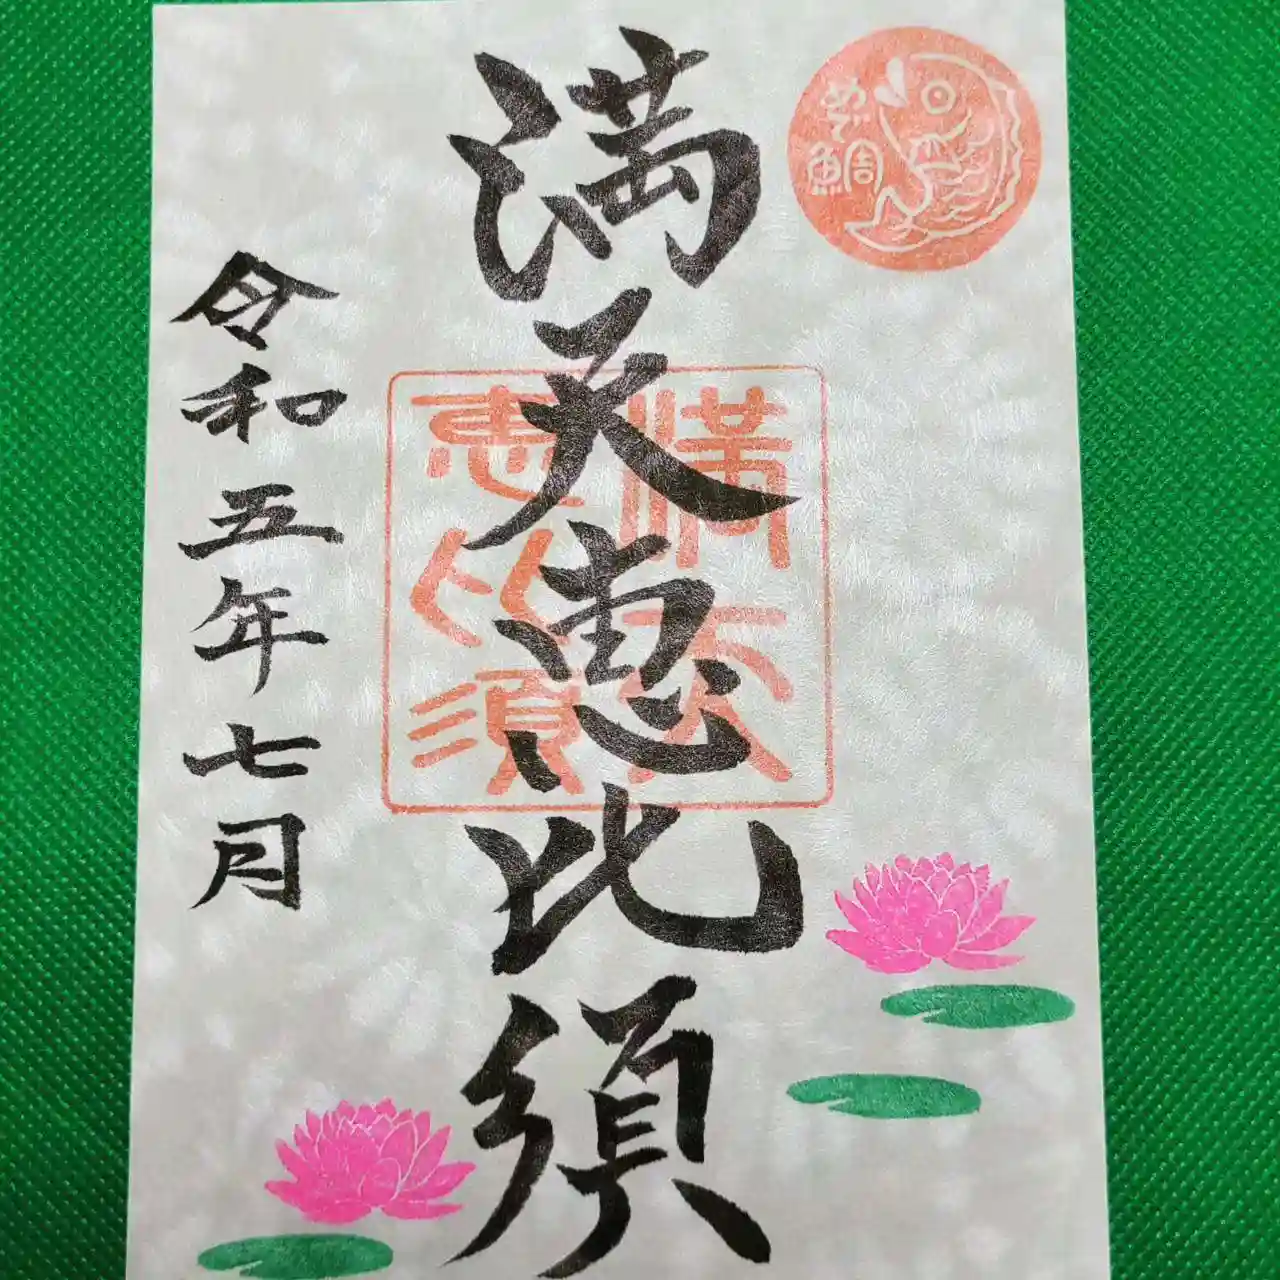 めで鯛
満天恵比須
満天
恵比須
令和五年七月